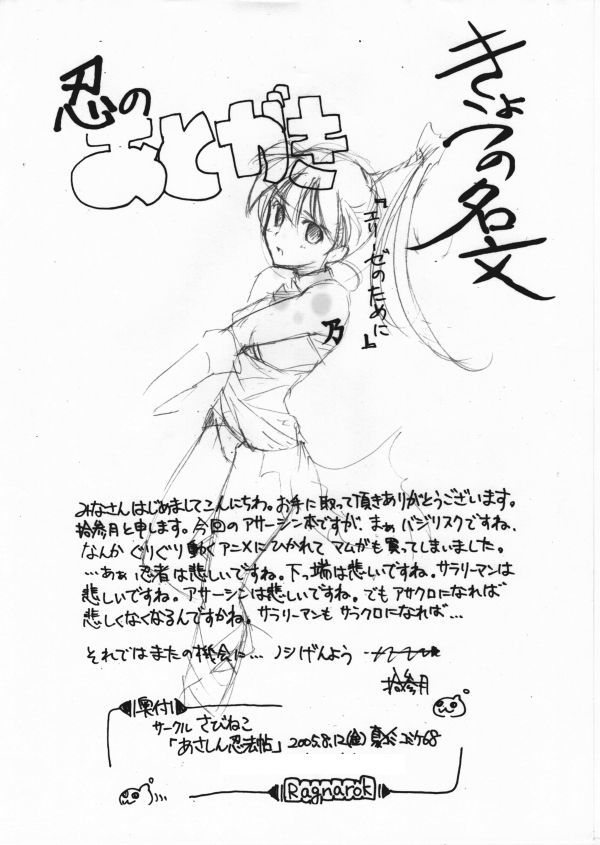 忍の
あとがき
きょうの名文
『エリーゼのために』
乃
みなさんはじめましてこんにちわ。お手に取って頂きありがとうございます。
拾参月と申します。今回のアサシン本ですが、まぁ バジリスクですね、
なんか ぐりぐり動くアニメにひかれて マムがも買ってしまいました。
…あぁ 忍者は悲しいですね。下っ端は悲しいですね。サラリーマンは
悲しいですね。アサシーンは悲しいですね。でも アサクロになれば
悲しくなくなるんですかね。サラリーマンも サラクロになれば…
それではまたの機会に… ノシ げんよう
拾参月
奥付
サークル さびねこ
「あさしん忍法帖」 2005.8.12(金) コミケ68
Ragnarok